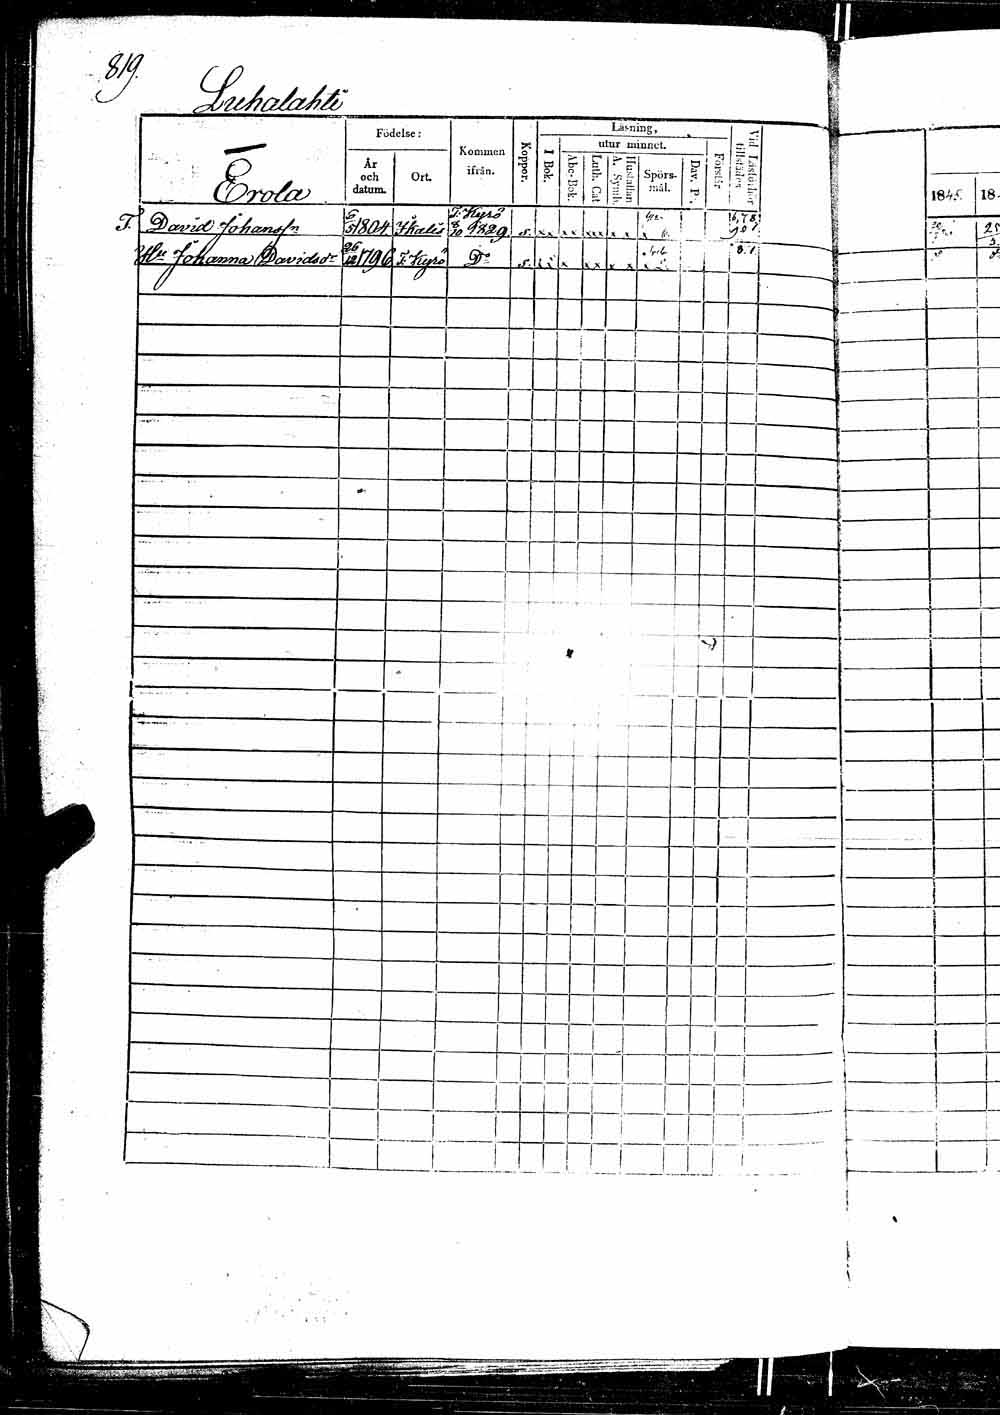 819.
Luhalahti
Erola
Födelse:
År och datum.
Ort.
Kommen ifrån.
Koppor.
Läsning,
I Bok.
utur minnet.
Abc-Bok.
Luth. Cat
Hustaflan A. Symb.
Spörs-mål.
Dav. P.
Förstår
Vid Läsförhör tillstädes
1845.
18
T. David Johanss:n 5/5 1804 Ikalis T. Kyrö 8/10 1829 s. xx xx xxx x x x 6,7,8,
Hu Johanna Davidsdr 26/12 1796 T. Kyrö Do s. x x x x x x